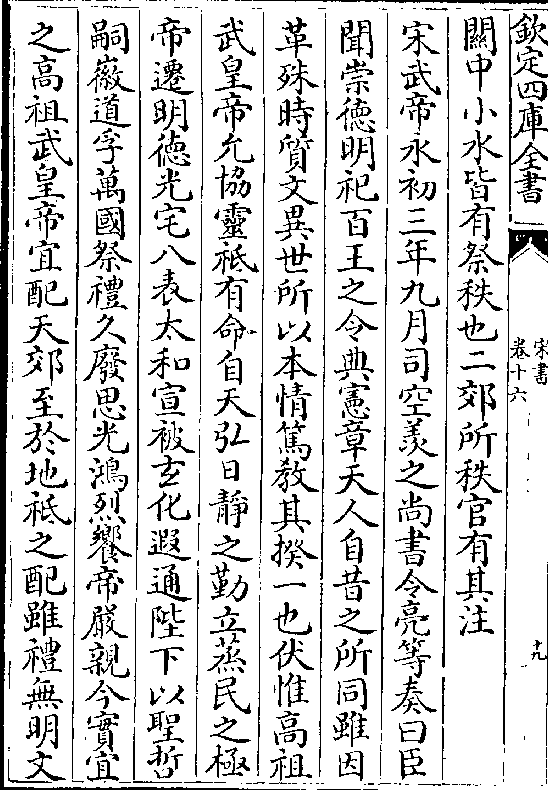 欽定四庫全書
宋書
卷十六
十九
關中小水皆有祭秩也二郊所秩官有其注
宋武帝永初三年九月司空羨之尚書令亮等奏曰臣
聞崇德明祀百王之令典憲章天人自昔之所同雖因
革殊時質文異世所以本情篤教其揆一也伏惟高祖
武皇帝允協靈祗有命自天弘日靜之勤立蒸民之極
帝遷明德光宅八表太和宣被玄化遐通陛下以聖哲
嗣徽道孚萬國祭禮久廢思光鴻烈饗帝嚴親今實宜
之高祖武皇帝宜配天郊至於地祗之配雖禮無明文